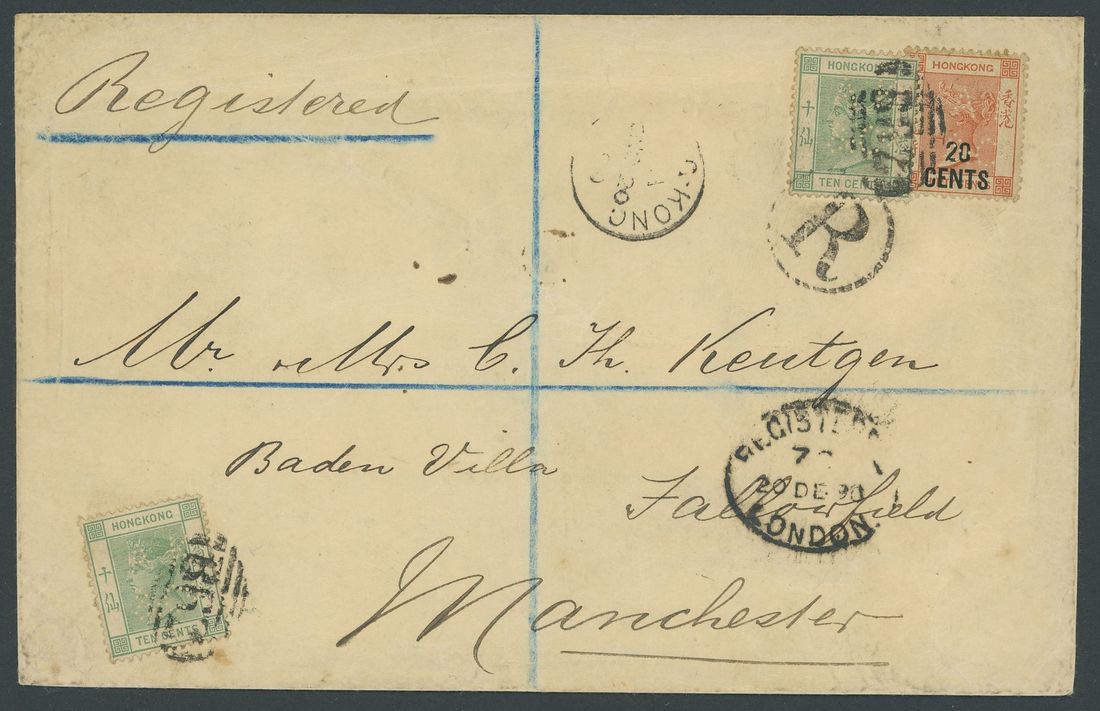 Registered
HONGKONG
十仙
TEN CENTS
HONGKONG
香港
20
CENTS
G-KONG
R
Mr. Mrs C. Th. Keutgen
Baden Villa
Fallowfield
Manchester
REGISTERED
20 DE 90
LONDON.
HONGKONG
十仙
TEN CENTS
B62